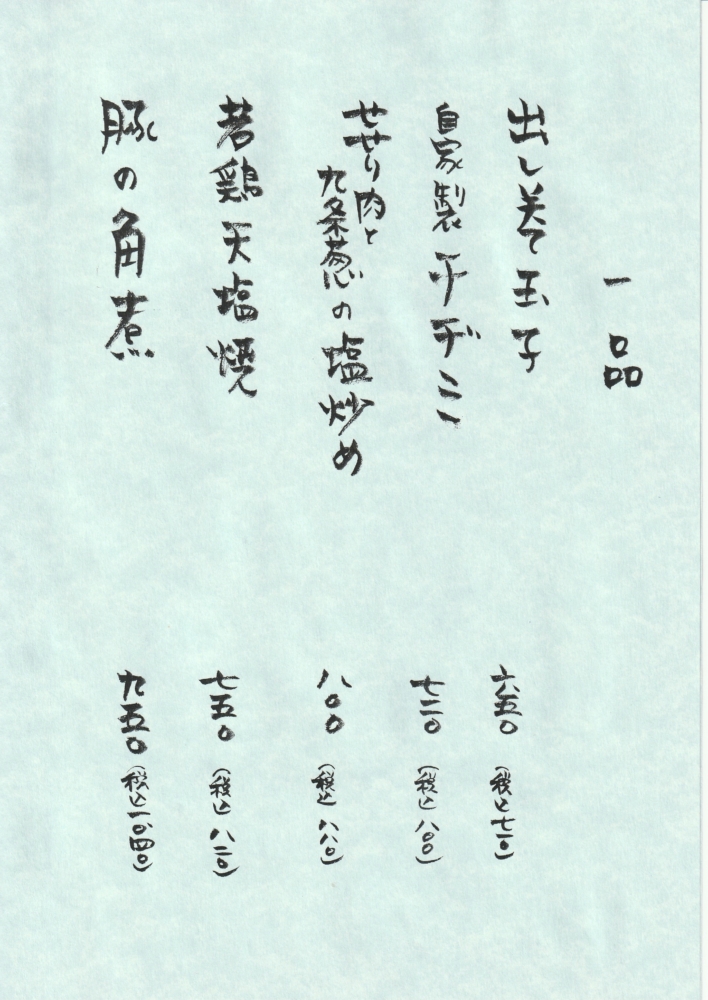 一品
出し巻玉子 六五〇 (税込七一〇)
自家製チヂミ 七二〇 (税込八〇〇)
せせり肉と九条葱の塩炒め 八〇〇 (税込八八〇)
若鶏天塩焼 七五〇 (税込八二〇)
豚の角煮 九五〇 (税込一、〇四〇)